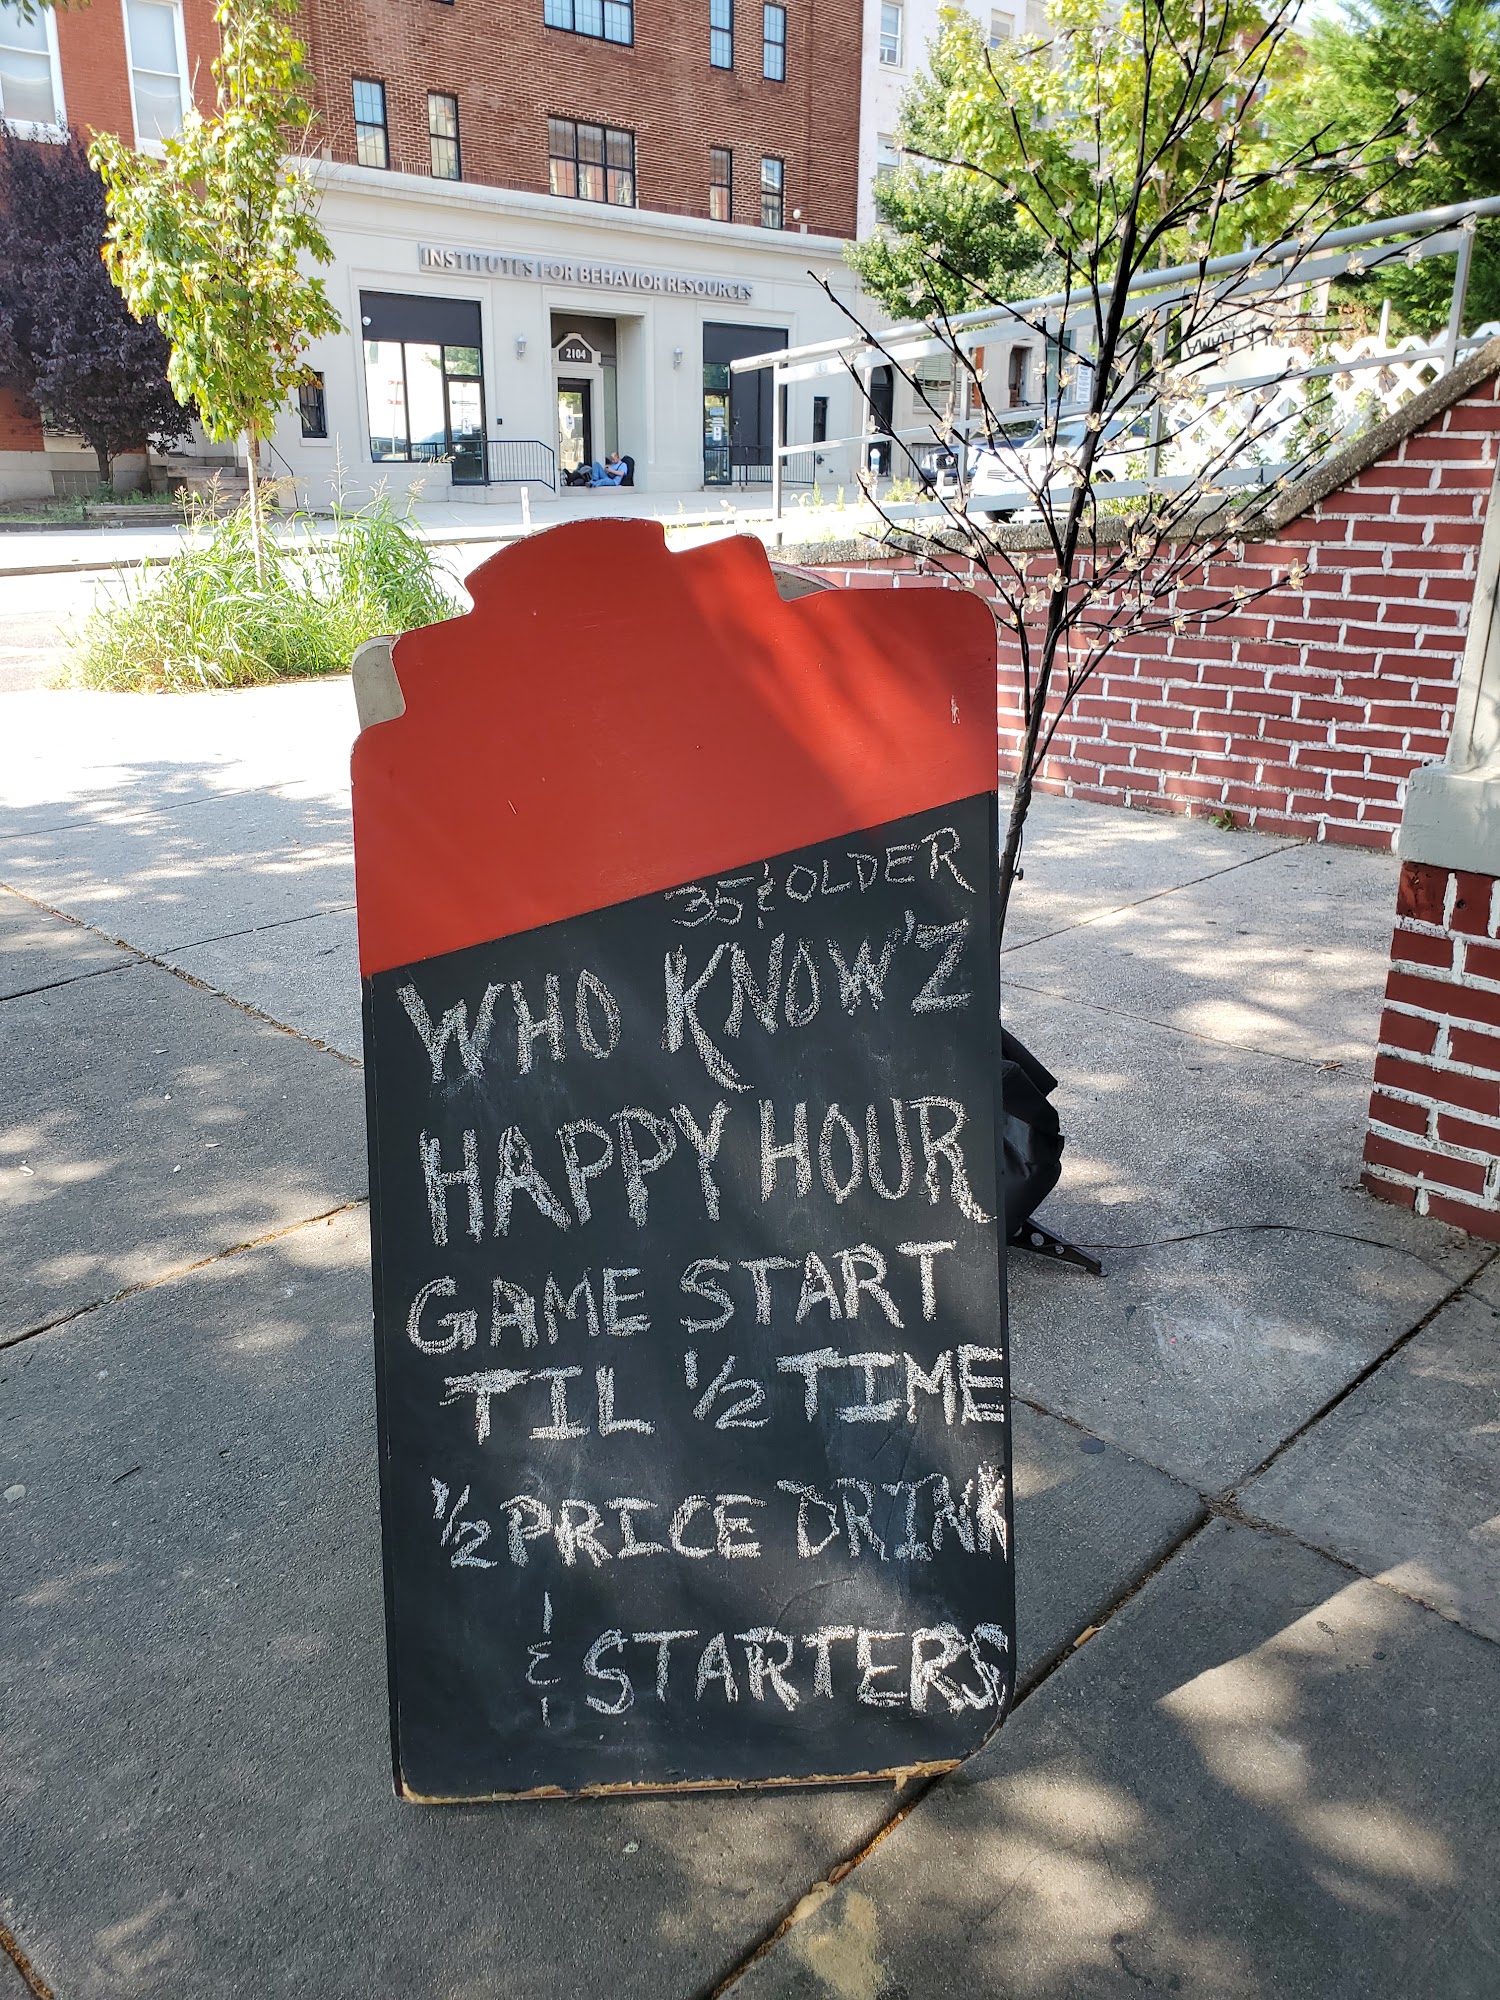 INSTITUTES FOR BEHAVIOR RESOURCES
2104
35 & OLDER
WHO KNOW'Z
HAPPY HOUR
GAME START
TIL 1/2 TIME
1/2 PRICE DRINK
& STARTERS